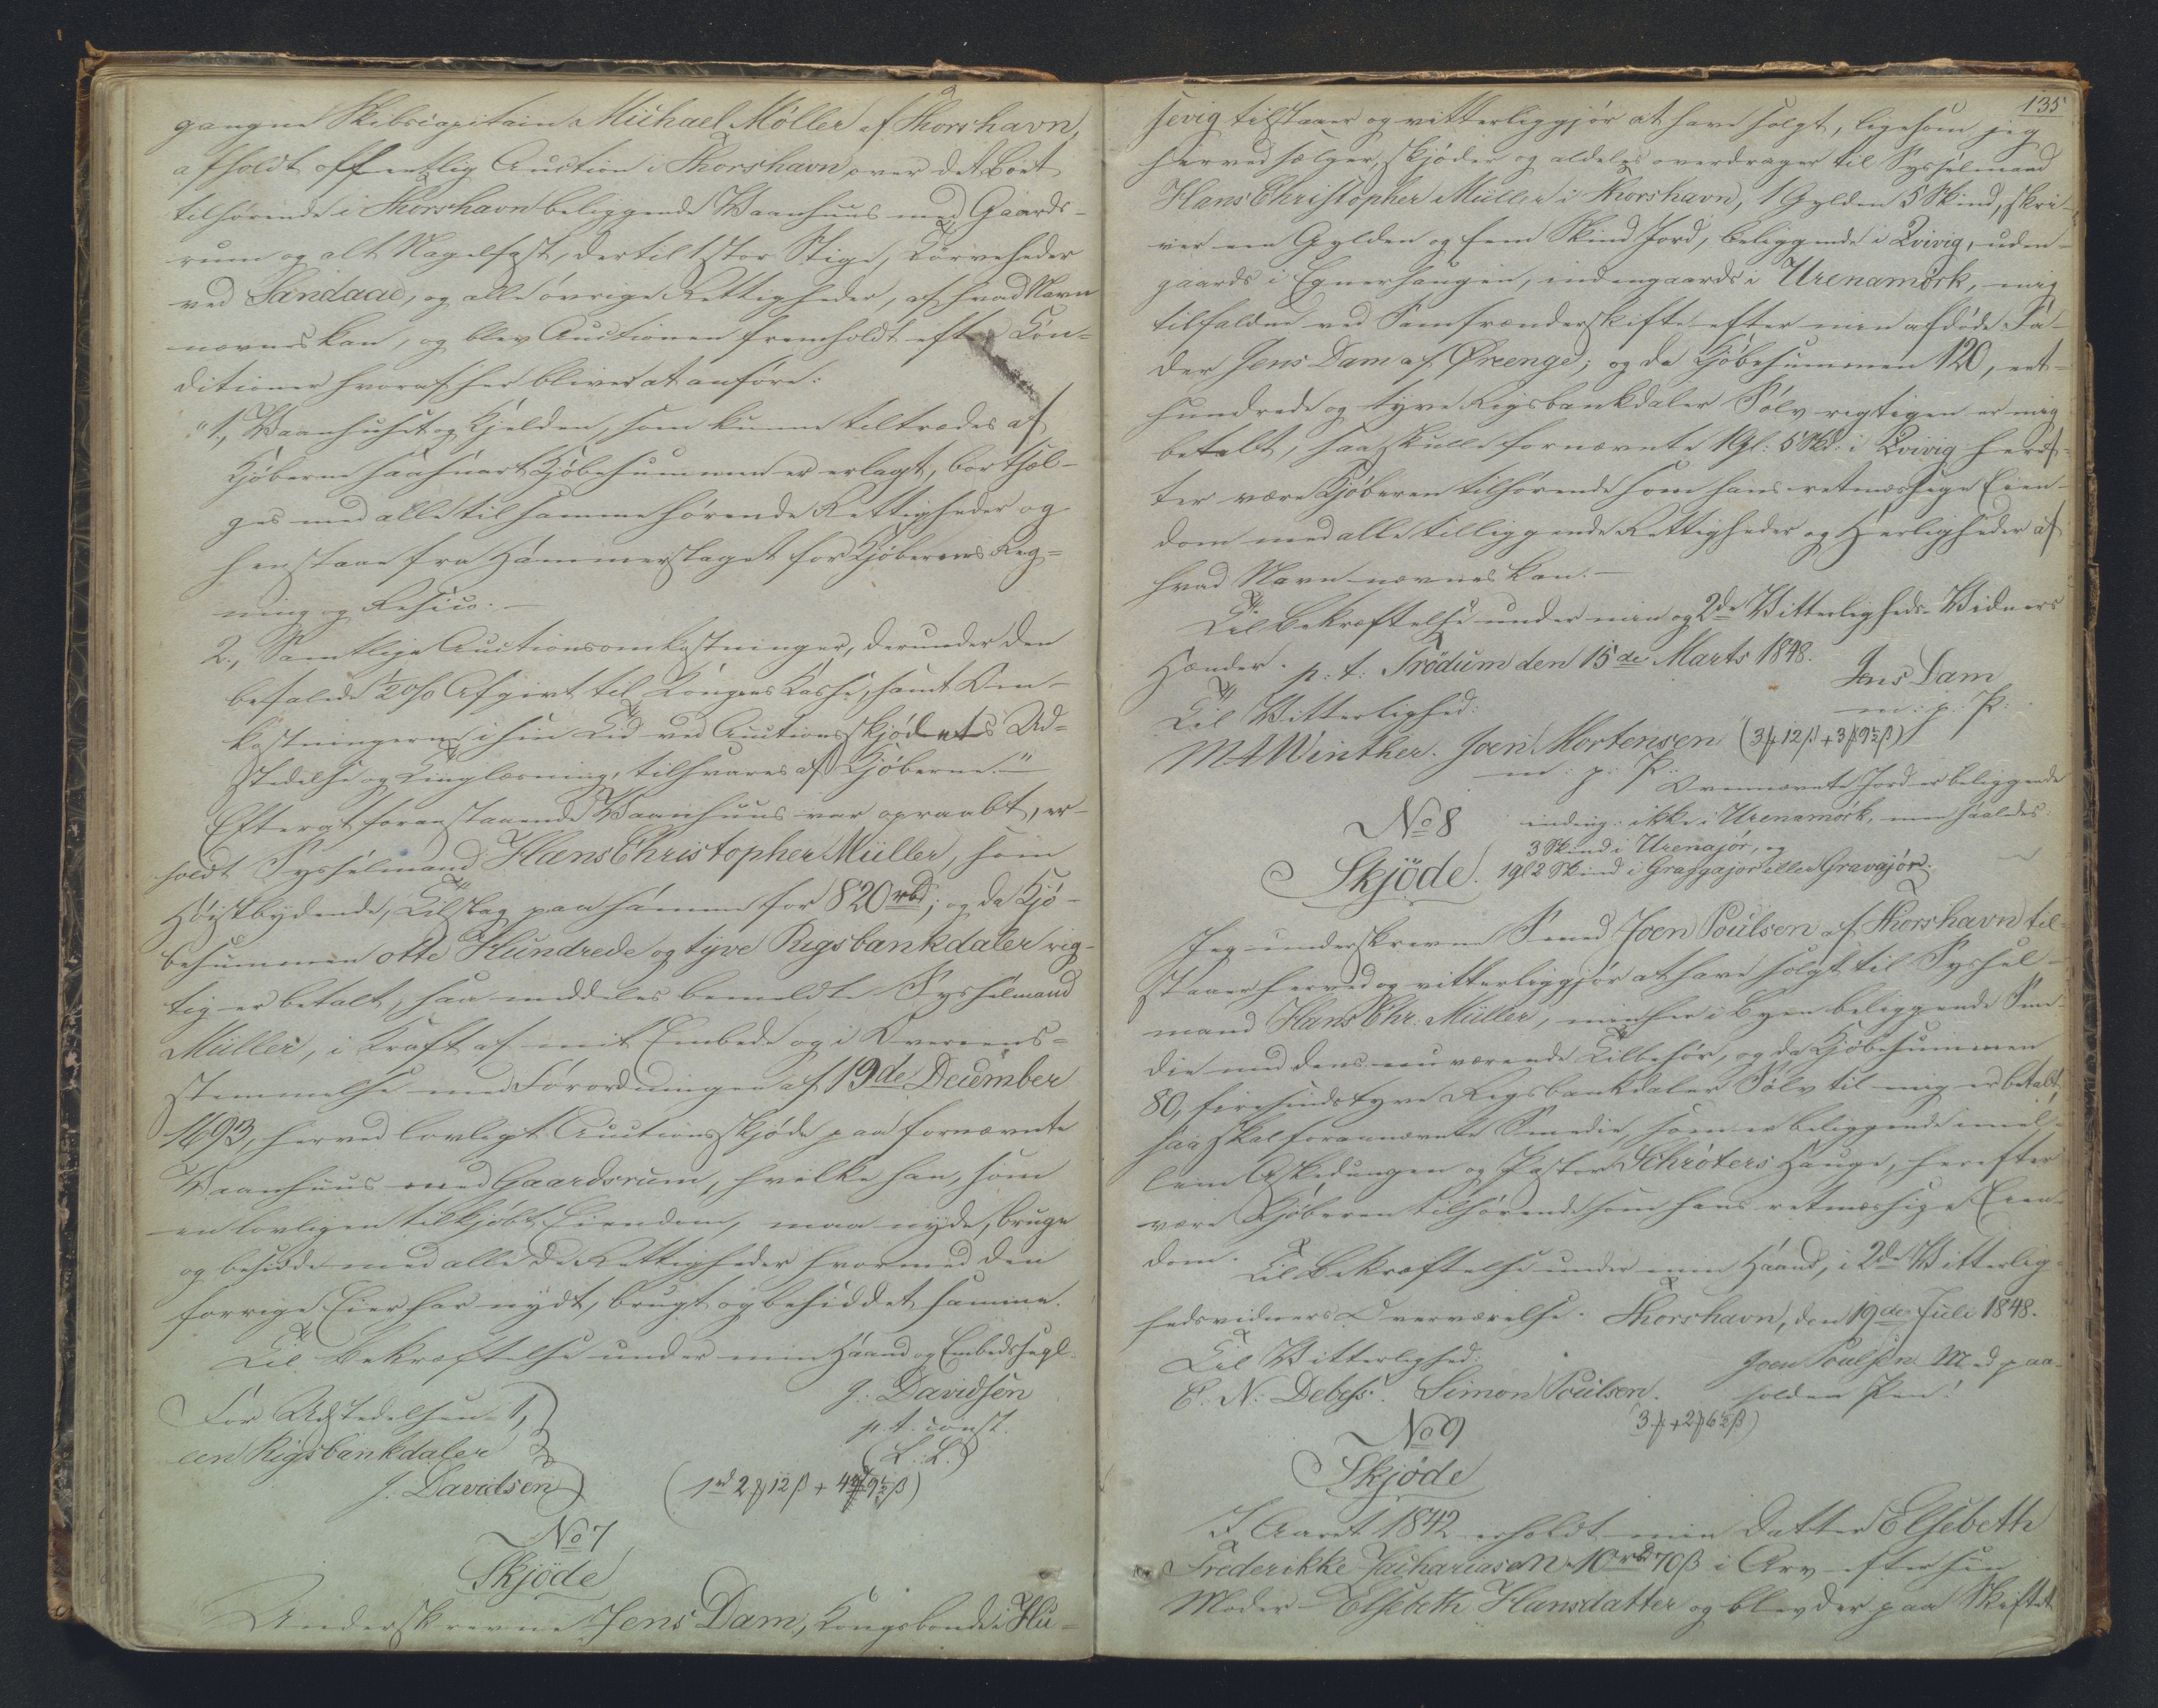 gangne Skibscapitain Michael Möller af Thorshavn,
afholdt offentlig Auction i Thorshavn over det Boet
tilhörende i Thorshavn beliggende Vaanhuus med Gaards-
rum og alt Nagelfast, dertil 1 stor Stige, Törveheder
ved Sandaae, og alle övrige Rettigheder, af hvad Navn
nævnes kan, og blev Auctionen fremholdt efter Con-
ditioner hvoraf her bliver at anföre:
"1., Vaanhuset og Kjelden, som kunne tiltrædes af
Kjöberne saasnart Kjöbesummen er erlagt, bortsæl-
ges med alle til samme hörende Rettigheder og
henstaae fra Hammerslaget for Kjöberens Reg-
ning og Resico.-
2., Samtlige Auctionsomkostninger, derunder den
befalede ½ % Afgivt til Kongens Kasse, samt Om-
kostningerne i sin Tid ved Auctionsskjödets Ud-
stedelse og Tinglæsning, tilsvares af Kjöberne."-
Efterat foranstaaende Vaanhuus var opraabt, er-
holdt Sysselmand Hans Christopher Müller, som
Höistbydende, Tilslag paa samme for 820 rbd; og da Kjö-
besummen otte Hundrede og tyve Rigsbankdaler rig-
tig er betalt, saa meddeles bemeldte Sysselmand
Müller, i Kraft af mit Embede og i Overeens-
stemmelse med Forordningen af 19de December
1693, herved lovligt Auctionsskjöde paa fornævnte
Vaanhuus med Gaardsrum, hvilke han, som
en lovligen tilkjöbt Eiendom, maa nyde, bruge
og besidde med alle de Rettigheder hvormed den
forrige Eier har nydt, brugt og besiddet samme.
Til Bekræftelse under min Haand og Embedssegl.
J. Davidsen
p. t. const.
(L. S.)
For Udstedelsen 1,
een Rigsbankdaler
J. Davidsen
(1 rd 2 ₻ 12 β + 4 ₻ 9½ β)
No 7
Skjöde
Underskrevne Jens Dam, Kongsbonde i Hu-
135
sevig tilstaaer og vitterliggjör at have solgt, ligesom jeg
herved sælger, skjöder og aldeles overdrager til Sysselmand
Hans Christopher Müller i Thorshavn, 1 Gylden 5 Skind, skri-
ver een Gylden og fem Skind Jord, beliggende i Qvivig, uden-
gaards i Egnerhaugen, indengaards i Urenamörk, mig
tilfalden ved Samfrænderskifte efter min afdöde Fa-
der Jens Dam af Öreenge; og da Kjöbesummen 120, eet-
hundrede og tyve Rigsbankdaler Sölv rigtigen er mig
betalt, saa skulle fornævnte 1 Gl: 5 Skd: i Qvivig heref-
ter være Kjöberen tilhörende som hans retmæssige Eien-
dom med alle tilliggende Rettigheder og Herligheder af
hvad Navn nævnes kan.-
Til Bekræftelse under min og 2de Vitterligheds-Vidners
Hænder. p. t. Trödum den 15de Marts 1848.
Jens Dam
m. p. P.
Til Vitterlighed:
M A Winther. Joen Mortensen (3 ₻ 12 β + 3 ₻ 9½ β)
m. p. P.
Ovennævnte Jord er beliggende
indvig: ikke i Urenamörk, men saaledes:
3 Skind i Urenajör, og
1 gl 2 Skind i Grafgajor eller Gravajör.
No 8
Skjöde.
Jeg underskrevne Smed Joen Poulsen af Thorshavn til-
staaer herved og vitterliggjör at have solgt til Syssel-
mand Hans Chr. Müller, min her i Byen beliggende Sme-
die med dens nuværende Tilbehör, og da Kjöbesummen
80, firesindstyve Rigsbankdaler Sölv til mig er betalt,
saa skal forannævnte Smedie, som er beliggende imel-
lem Askedungen og Pastor Schröters Hauge, herefter
være Kjöberen tilhörende som hans retmæssige Eien-
dom.
Til Bekræftelse under min Haand, i 2de Vitterlig-
hedsvidners Overværelse. Thorshavn, den 19de Juli 1848.
Til Vitterlighed:
Joen Poulsen Med paa-
E. N. Debess. Simon Poulsen. holden Pen!
(3 ₻ + 2 ₻ 6½ β)
No 9
Skjöde
I Aaret 1842 erholdt min Datter Elsebeth
Frederikke Zachariasen 10 rbd 70 β i Arv efter sin
Moder Elsebeth Hansdatter og blev der paa Skiftet